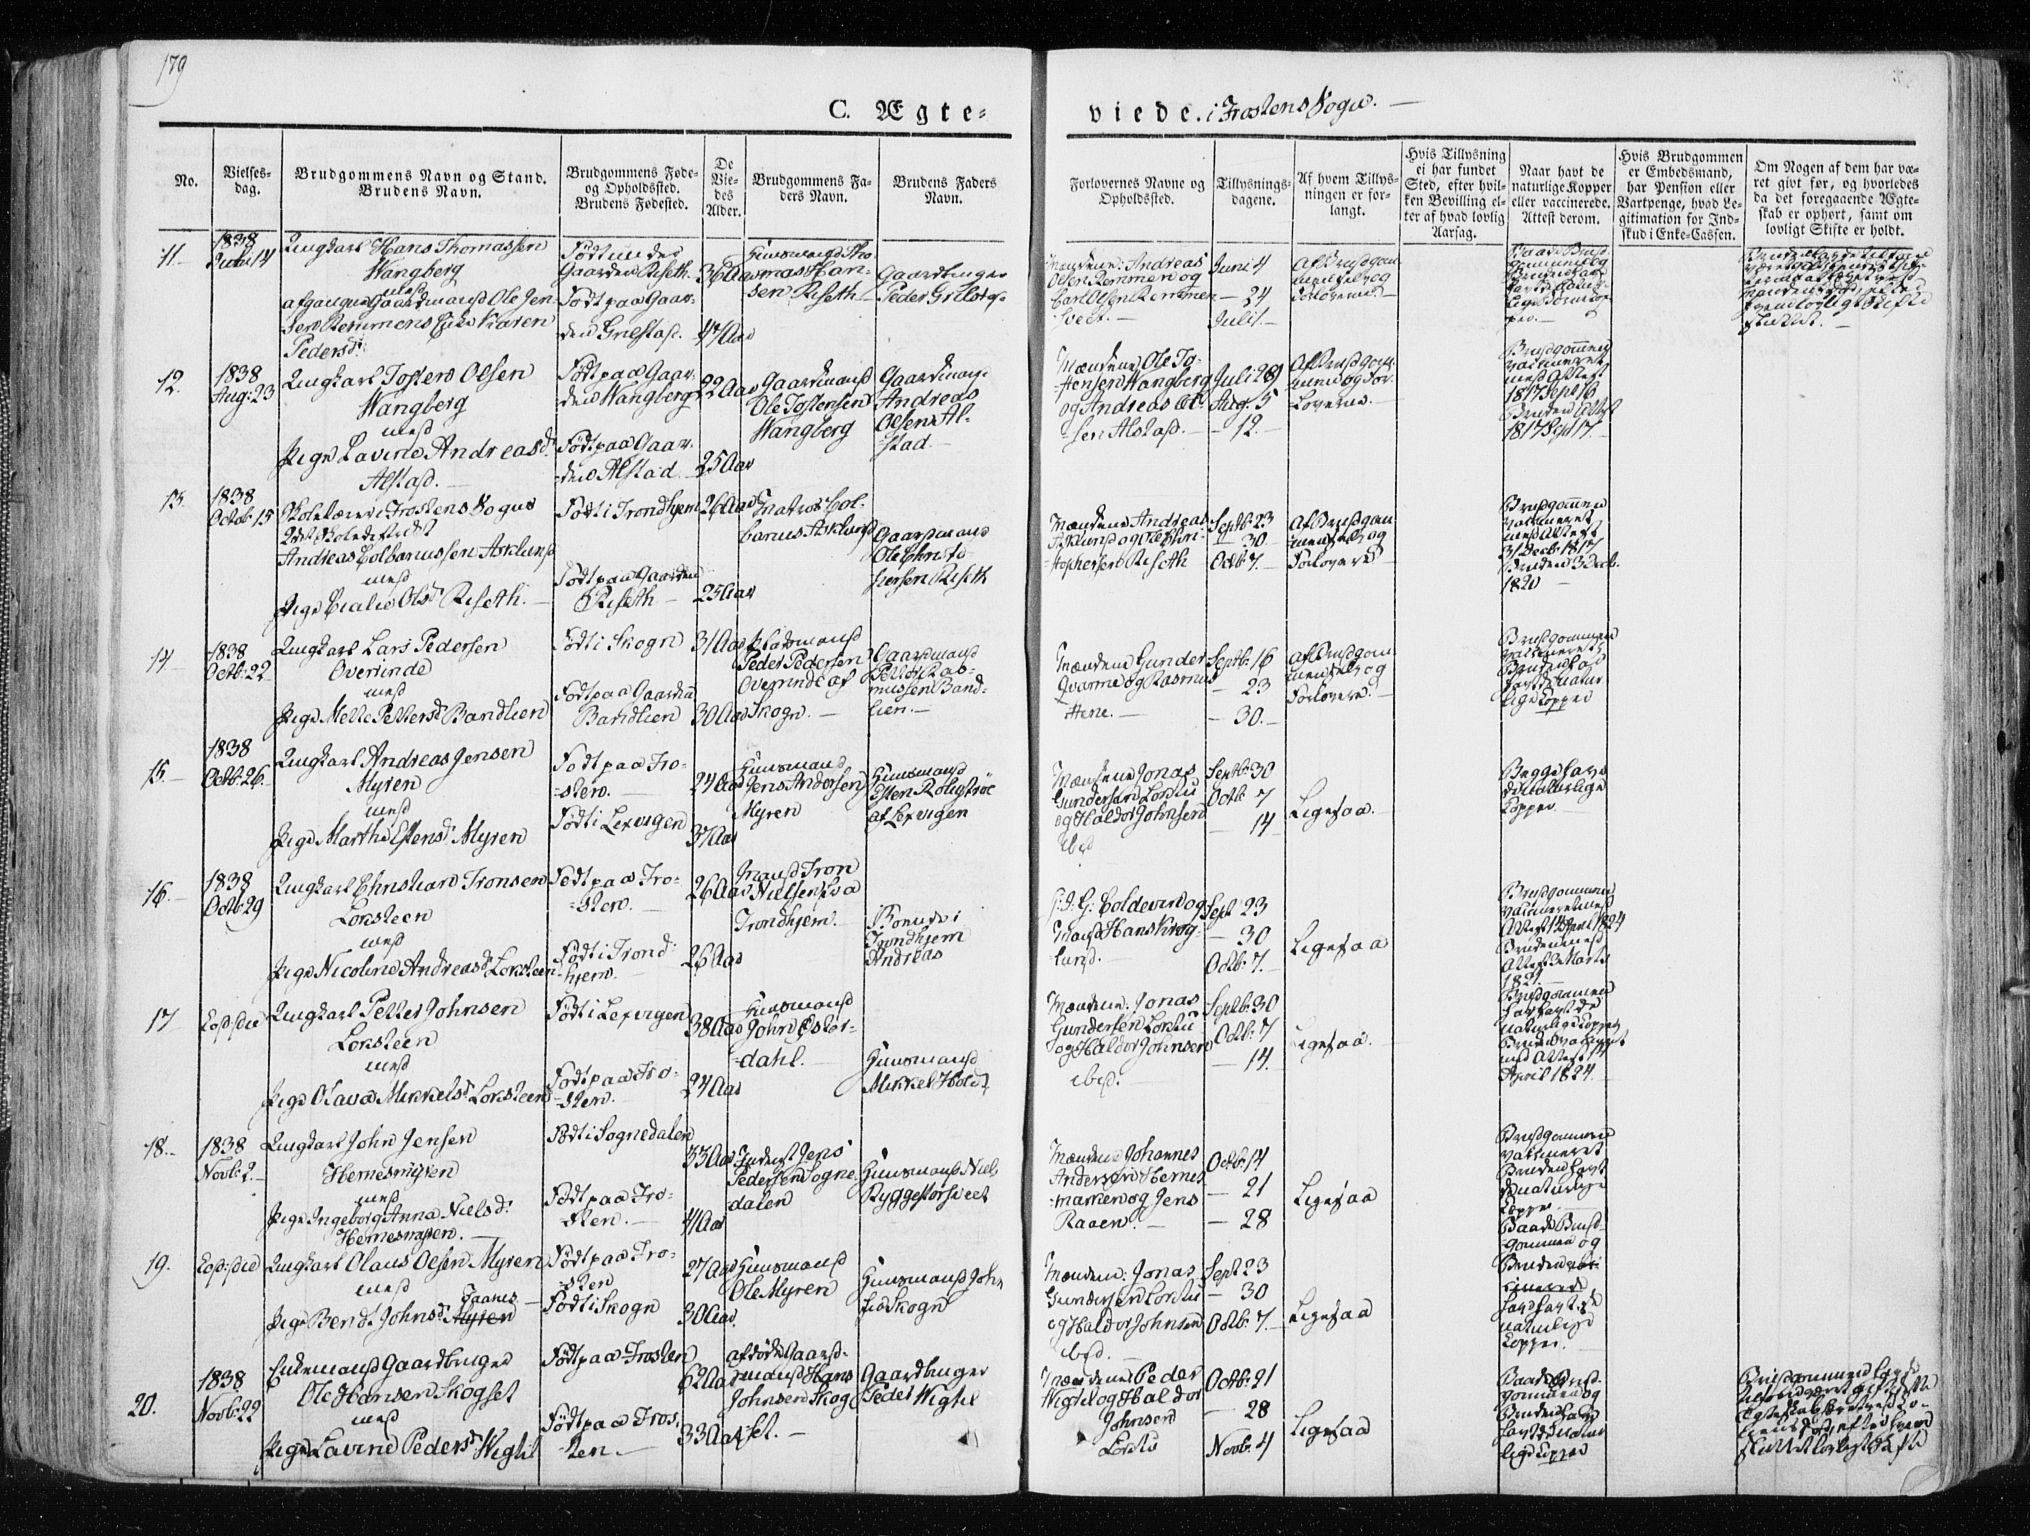 179
C. Ægte-
viede. i Frostens Sogn. —
No.
Vielses-
dag.
Brudgommens Navn og Stand.
Brudens Navn.
Brudgommens Føde-
og Opholdssted.
Brudens Fødested.
De
Vie-
des
Alder.
Brudgommens Fa-
ders Navn.
Brudens Faders
Navn.
Forlovernes Navne og
Opholdssted.
Tillysnings-
dagene.
Af hvem Tillys-
ningen er for-
langt.
Hvis Tillysning
ei har fundet
Sted, efter hvil-
ken Bevilling el-
ler af hvad lovlig
Aarsag.
Naar havt de
naturlige Kopper
eller vaccinerede.
Attest derom.
Hvis Brudgommen
er Embedsmand,
har Pension eller
Vartpenge, hvad Le-
gitimation for Ind-
skud i Enke-Cassen.
Om Nogen af dem har væ-
ret givt før, og hvorledes
da det foregaaende Ægte-
skab er ophørt, samt om
lovligt Skifte er holdt.
11
1838
Juli 14
Ungkarl Hans Thomassen
Wangberg
med
afgangne Gaardmand Ole Jen-
sen Remmens Enke Karen
Pedersd.
Født under
Gaarden Riseth
Født paa Gaar-
den Grilstad.
36 Aar
47 Aar
Huusmand Tho
mas Han-
sen Riseth
Gaardbruger
Peder Grilstad
Mændene: Andreas
Olsen Remmen og
Carl Olsen Remmen
Juni 4
— 24
Juli 1
Af Brudgom-
men selv og
Forloverne.
12.
1838
Aug: 23
Ungkarl Josten Olsen
Wangberg
med
Pige Lavine Andreasd.
Alstad.
Født paa Gaar-
den Wangberg
Født paa Gaar-
den Alstad
22 Aar
25 Aar
Gaardmand
Ole Jostensen
Wangberg
Gaardmand
Andreas
Olsen Al-
stad.
Mændene Ole Jo-
stensen Wangberg
og Andreas Ol-
sen Alstad.
Juli 29
Aug. 5
— 12.
Af Brudgom-
men og For-
loverne.
Brudgommen
vaccineret
med Attest
1817 Sept 16
Bruden Attest
1817 Sept 17
13.
1838
Octob: 15
Skolelærer i Frostens Sogns
Andreas Colbanussen Asklund
med
Pige Olsd. Riseth.
Født i Trondhjem
Født paa Gaarden
Riseth
26 Aar
25 Aar
Matros Col-
banus Asklund
Gaardmand
Ole Christo-
phersen Riseth
Mændene Andreas
Asklund og Ole Chri-
stophersen Riseth
Septb: 23
— 30
Octb: 7.
Af Brudgom-
men selv og
Forlovere
Brudgommen
vaccineret
med Attest
31 Decb 1817
Bruden 3 Decb.
1820
14
1838
Octb: 22
Ungkarl Lars Pedersen
Overrinde
med
Pige Mette Pettersd. Bandlien
Født i Skogn
Født paa Gaarden
Bandlien
31 Aar
30 Aar
Pladsmand
Peder Pedersen
Overrinde af
Skogn.
Gaardmand
Petter Ras-
mussen Band-
lien.
Mændene Gunder
Qvarme og Rasmus
Hene.
Septb: 16
— 23
— 30.
Af Brudgom
men selv og
Forlovere.
Brudgommen
vaccineret
Bruden har
havt de natur
lige Kopper
15.
1838
Octb: 26.
Ungkarl Andreas Jensen
Myren
med
Pige Marthe Estensd. Myren
Født paa Fro-
sten.
Født i Lexvigen
24 Aar
37 Aar
Huusmand
Jens Andersen
Myren
Huusmand
Esten Roligstrøe
af Lexvigen
Mændene Jonas
Gundersen Lorstu
og Haldor Johnsen
ibid
Septb: 30
Octb. 7
— 14
Ligesaa.
Begge have
de naturlige
Kopper.
16.
1838
Octb: 29
Ungkarl Christian Tronsen
Loksteen
med
Pige Nicoline Andreasd. Loksteen
Født paa Fro-
sten.
Født i Trond-
hjem.
26 Aar
26 Aar
Mand Tron
Nielsen fra
Trondhjem.
Boende i
Trondhjem
Andreas
Coldevin og
Mand Hans Krog-
lund.
Sept 23
— 30
Octb. 7.
Ligesaa
Brudgommen
vaccineret med
Attest 14 April 1824
Bruden med
Attest 3 Marts
17
Eod: die
Ungkarl Petter Johnsen
Loksteen
med
Pige Olava Mikkelsd. Loksteen
Født i Lexvigen
Født paa Fro-
sten.
38 Aar
24 Aar
Huusmand
John Øster-
dahl.
Huusmand
Mikkel Holdt
Mændene: Jonas
Gundersen Lorstu
og Haldor Johnsen
ibid.
Septb: 30
Octb. 7
— 14.
Ligesaa.
Brudgommen
har havt de
naturlige Kopper
Bruden vaccineret
med Attest 14
April 1824.
18.
1838
Novb: 2.
Ungkarl John Jensen
Hernesmyren
med
Pige Ingeborg Anna Nielsd.
Hernesmyren.
Født i Sognedalen
Født paa Fro-
sten.
33 Aar
41 Aar
Inderst Jens
Pedersen Sogne
dalen
Huusmand Niels
Ryggetorsveet
Mændene Johannes
Andersen Hernes
marken og Jens
Raaen.
Octb: 14
— 21
— 28
Ligesaa
Brudgommen
vaccineret
Bruden havt
de naturlige
Kopper.
19.
Eod: die
Ungkarl Olaus Olsen Myren
med
Faanes
Pige Bendt Johnsd. Myren
Født paa Fro-
sten
Født i Skogn
27 Aar
30 Aar.
Huusmand
Ole Myren
Huusmand John
fra Skogn
Mændene: Jonas
Gundersen Lorstu
og Haldor Johnsen
ibid.
Sept 23
— 30
Octb. 7
Ligesaa
Baade Brud-
gommen og
Bruden
har havt de
naturlige
Kopper.
20.
1838
Novb: 22
Enkemand Gaardbruger
Ole Hansen Skogset
med
Pige Lavine Pedersd. Wigtil
Født paa Frosten
Født paa Fros-
ten.
62 Aar
33 Aar
afdøde Gaard-
mand Hans
Johnsen Skog-
set.
Gaardbruger
Peder Wigtil
Mændene Peder
Wigtil og Haldor
Johnsen
Lorstu
Octb: 21
— 28
Novb. 4
Ligesaa
Baade Brud-
gommen og
Bruden have
havt de natur
lige Kopper